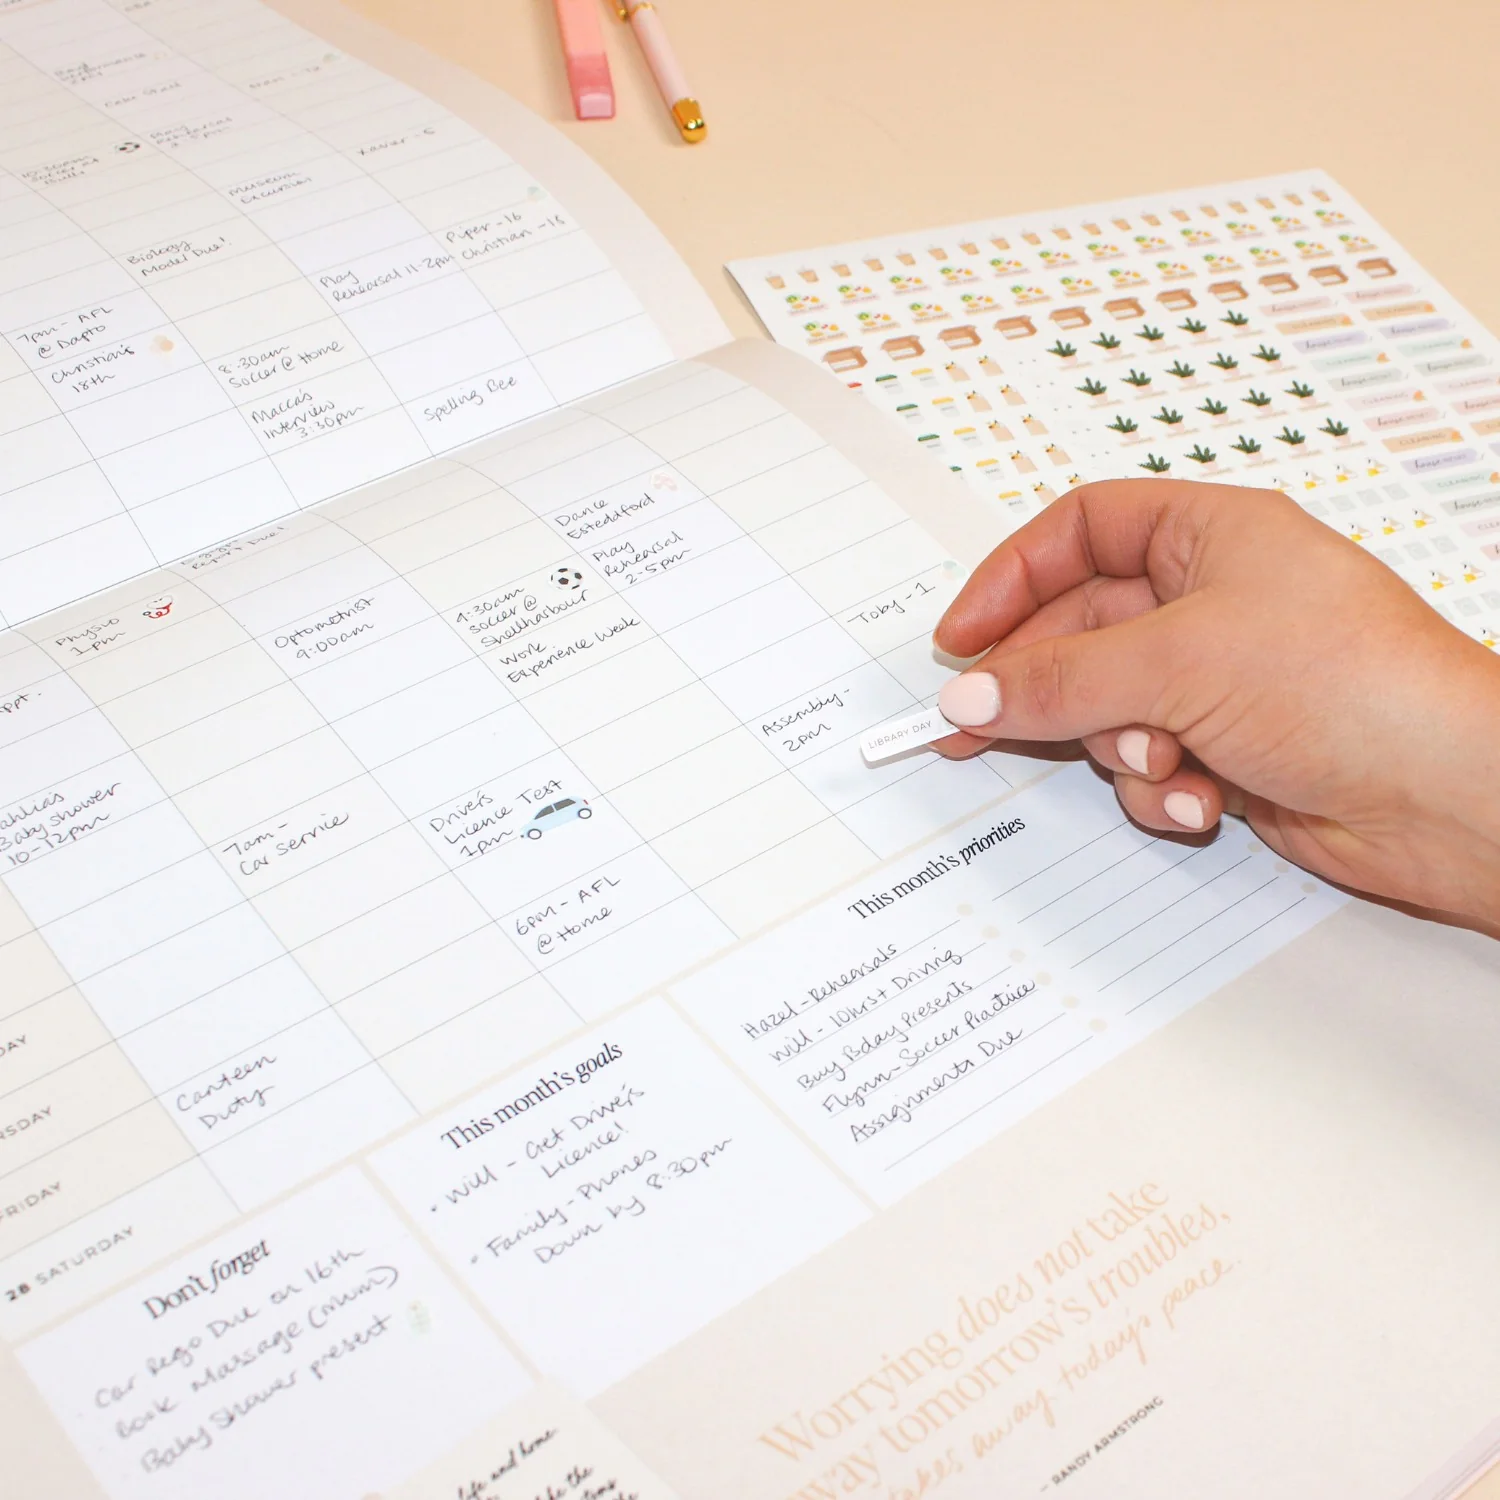 Cake Stall
Play
Rehearsal
10:30am
Soccer at
Xavier - 6
Museum
Excursion
Piper - 16
Christian - 18
Biology
Model Due!
Play
Rehearsal 11-2pm
7pm - AFL
@ Dapto
Christian's
18th
8:30am
Soccer @ Home
Macca's
Interview
3:30pm
Spelling Bee
Report Due!
Dance
Esteddford
Play
Rehearsal
2-5pm
Physio
1pm
Optometrist
9:00am
9:30am
Soccer @
Shellharbour
Work
Experience Week
Toby - 1
Appt.
Assembly -
2pm
LIBRARY DAY
ahlia's
Baby shower
10-12pm
7am -
Car Service
Driver's
Licence Test
1pm
6pm - AFL
@ Home
Canteen
Duty
DAY
RSDAY
FRIDAY
28 SATURDAY
This month's priorities
Hazel - Rehearsals
Will - 10hrs+ Driving
Buy Bday Presents
Flynn - Soccer Practice
Assignments Due
This month's goals
• Will - Get Driver's
Licence!
• Family - Phones
Down by 8:30pm
Don't forget
Car Rego Due on 16th
Book Massage (mum)
Baby Shower present
Worrying does not take
way tomorrow's troubles,
takes away today's peace.
- RANDY ARMSTRONG
life and home
like the